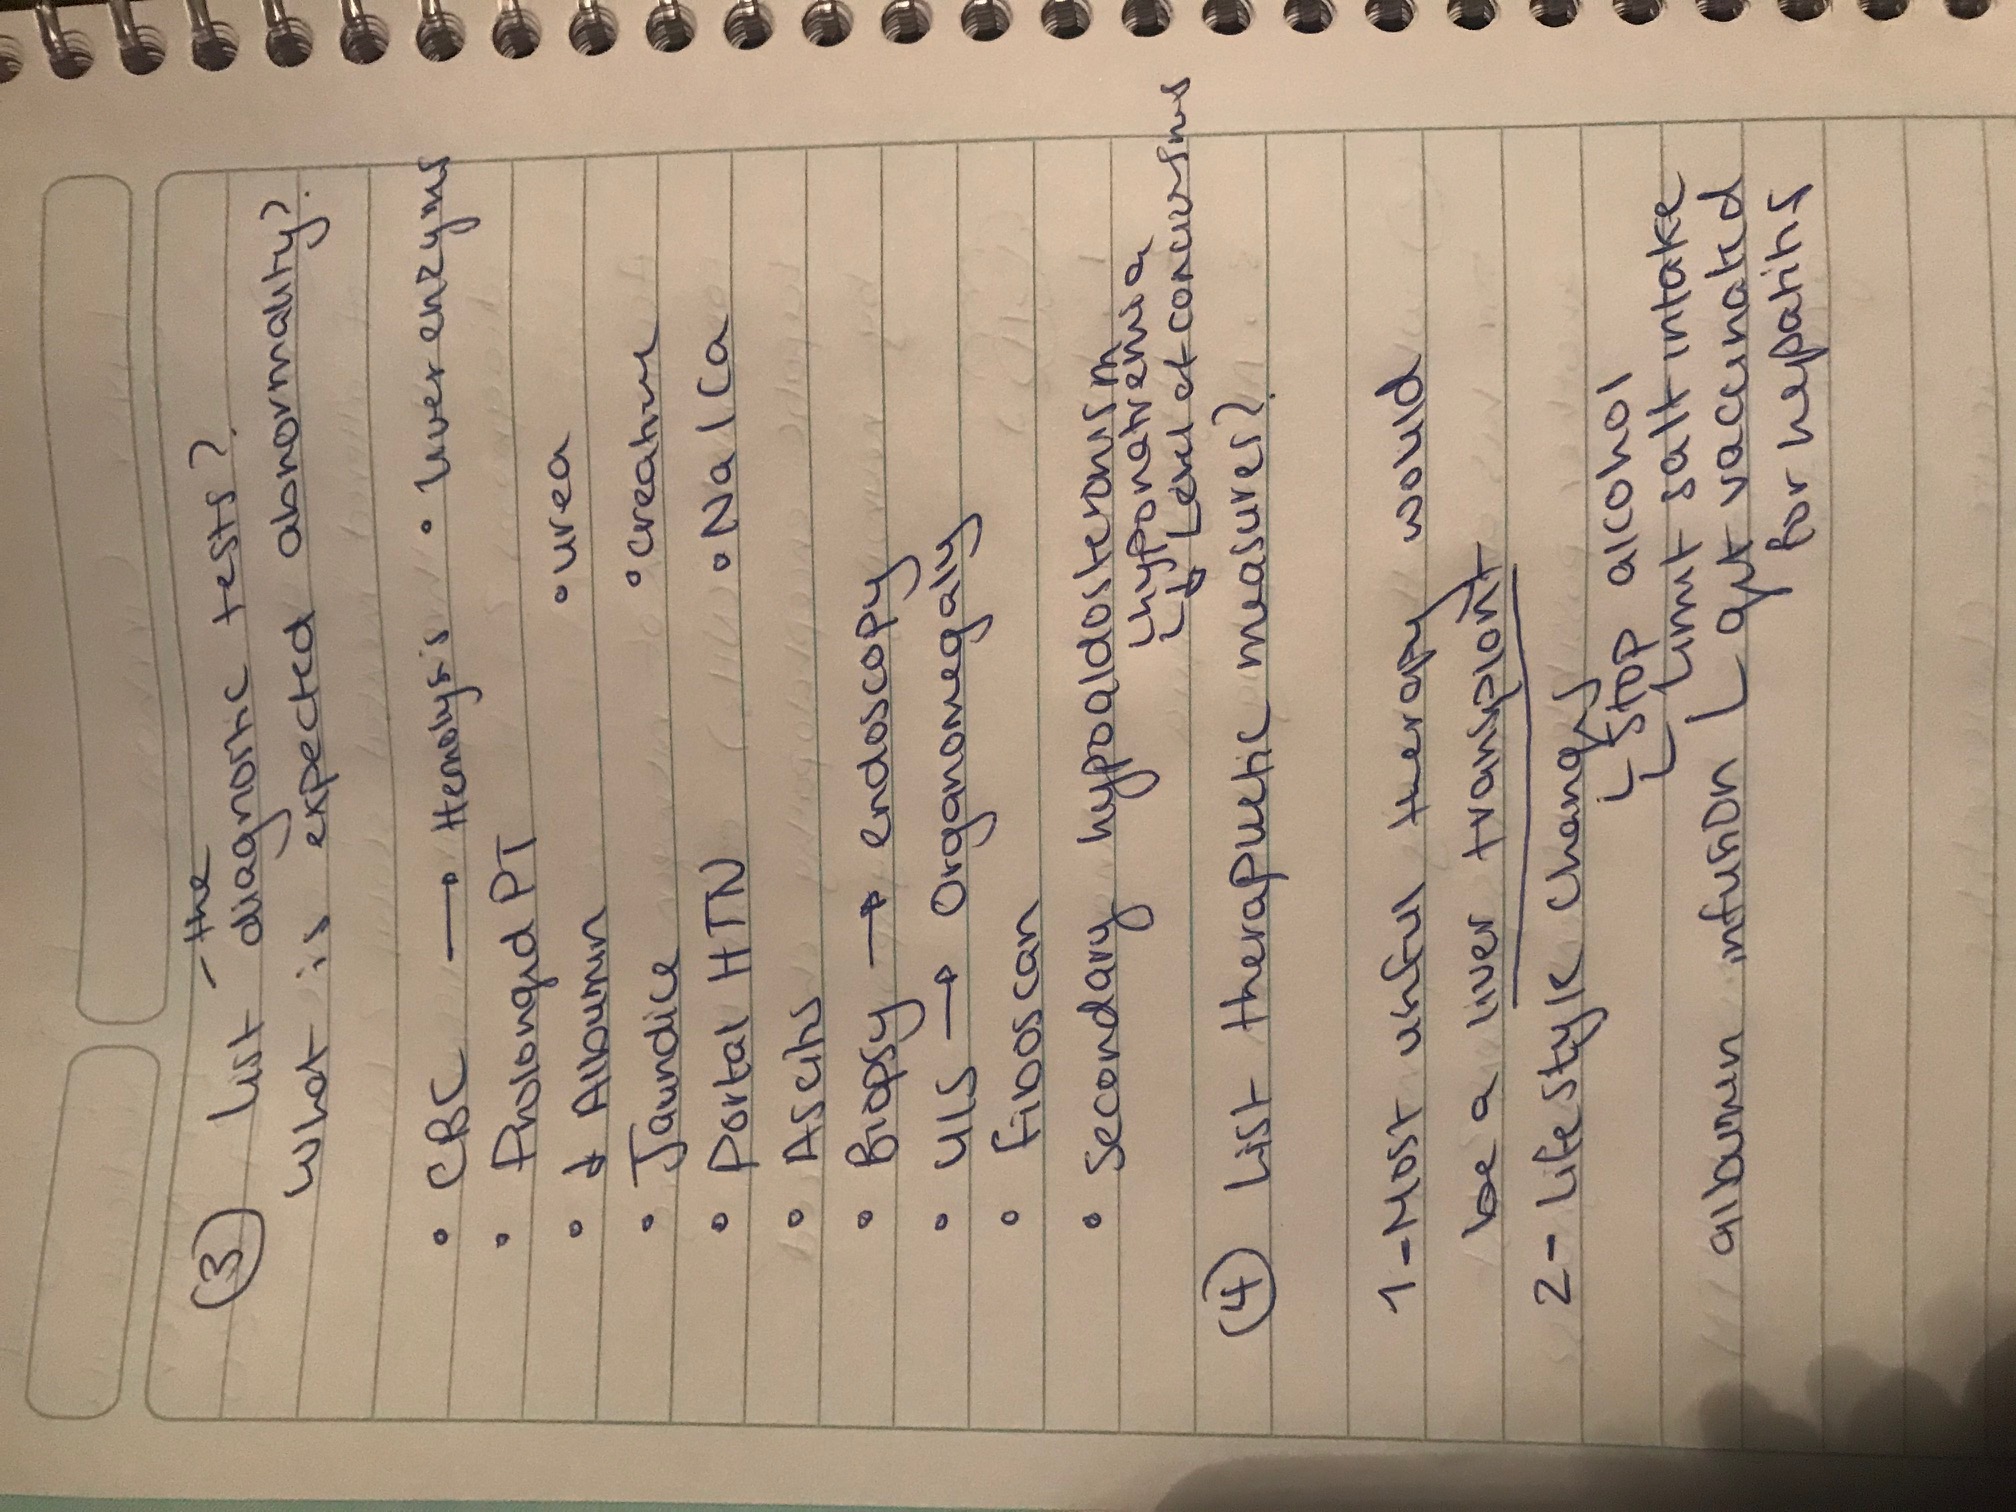 ③ List the diagnostic tests?
What is expected abnormality?
• CBC → Hemolysis • liver enzymes
• Prolonged PT
• ↓ Albumin • urea
• Jaundice • creatinine
• Portal HTN • Na / Ca
• Ascites
• Biopsy → endoscopy
• U/S → Organomegaly
• Fibroscan
• Secondary hypoaldosteronism
↳ hyponatremia
↳ Level of conciousness
④ List therapeutic measures?
1-Most usful therapy would
be a liver transplant
2-Life style changes
↳ Stop alcohol
↳ Limit salt intake
albumin infusion ↳ get vaccinated
for hepatitis